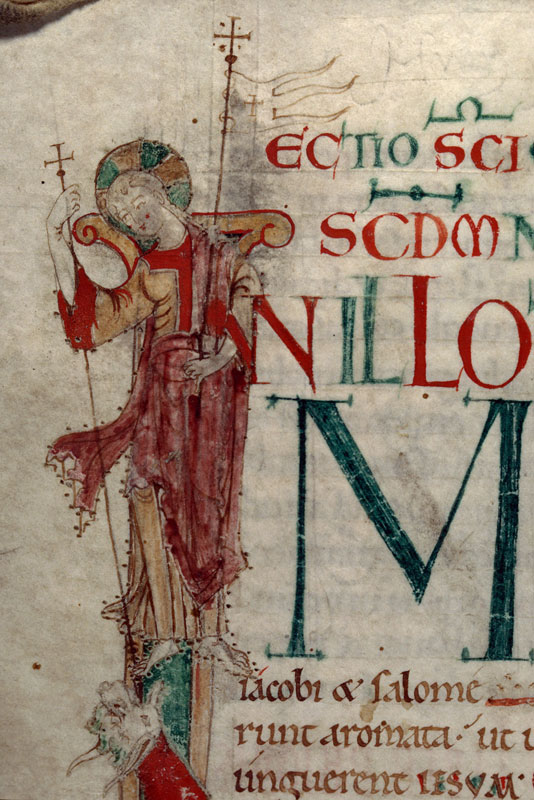 ECTIO SCI
SCDM
NILLO
M
iacobi & salome
runt aromata. ut
unguerent IESVM.